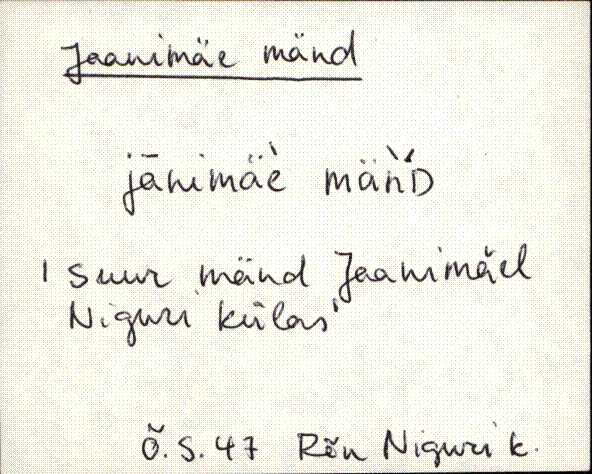 Jaanimäe mänd
jānimäè mäǹ̀D
' suur mänd Jaanimäel
Niguri külas'
Õ.S. 47 Rõn Niguri k.